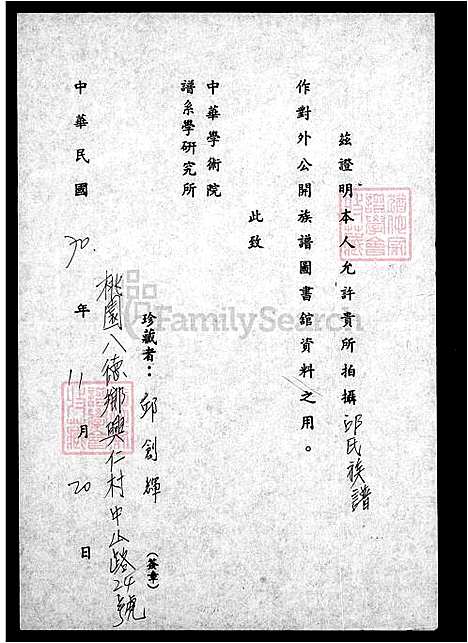 茲證明本人允許貴所拍攝邱氏族譜
作對外公開族譜圖書館資料之用。
此致
中華學術院
譜系學研究所
珍藏者：邱創輝（簽章）
桃園八德鄉興仁村中山路24號
中華民國70.年11月20日
FamilySearch